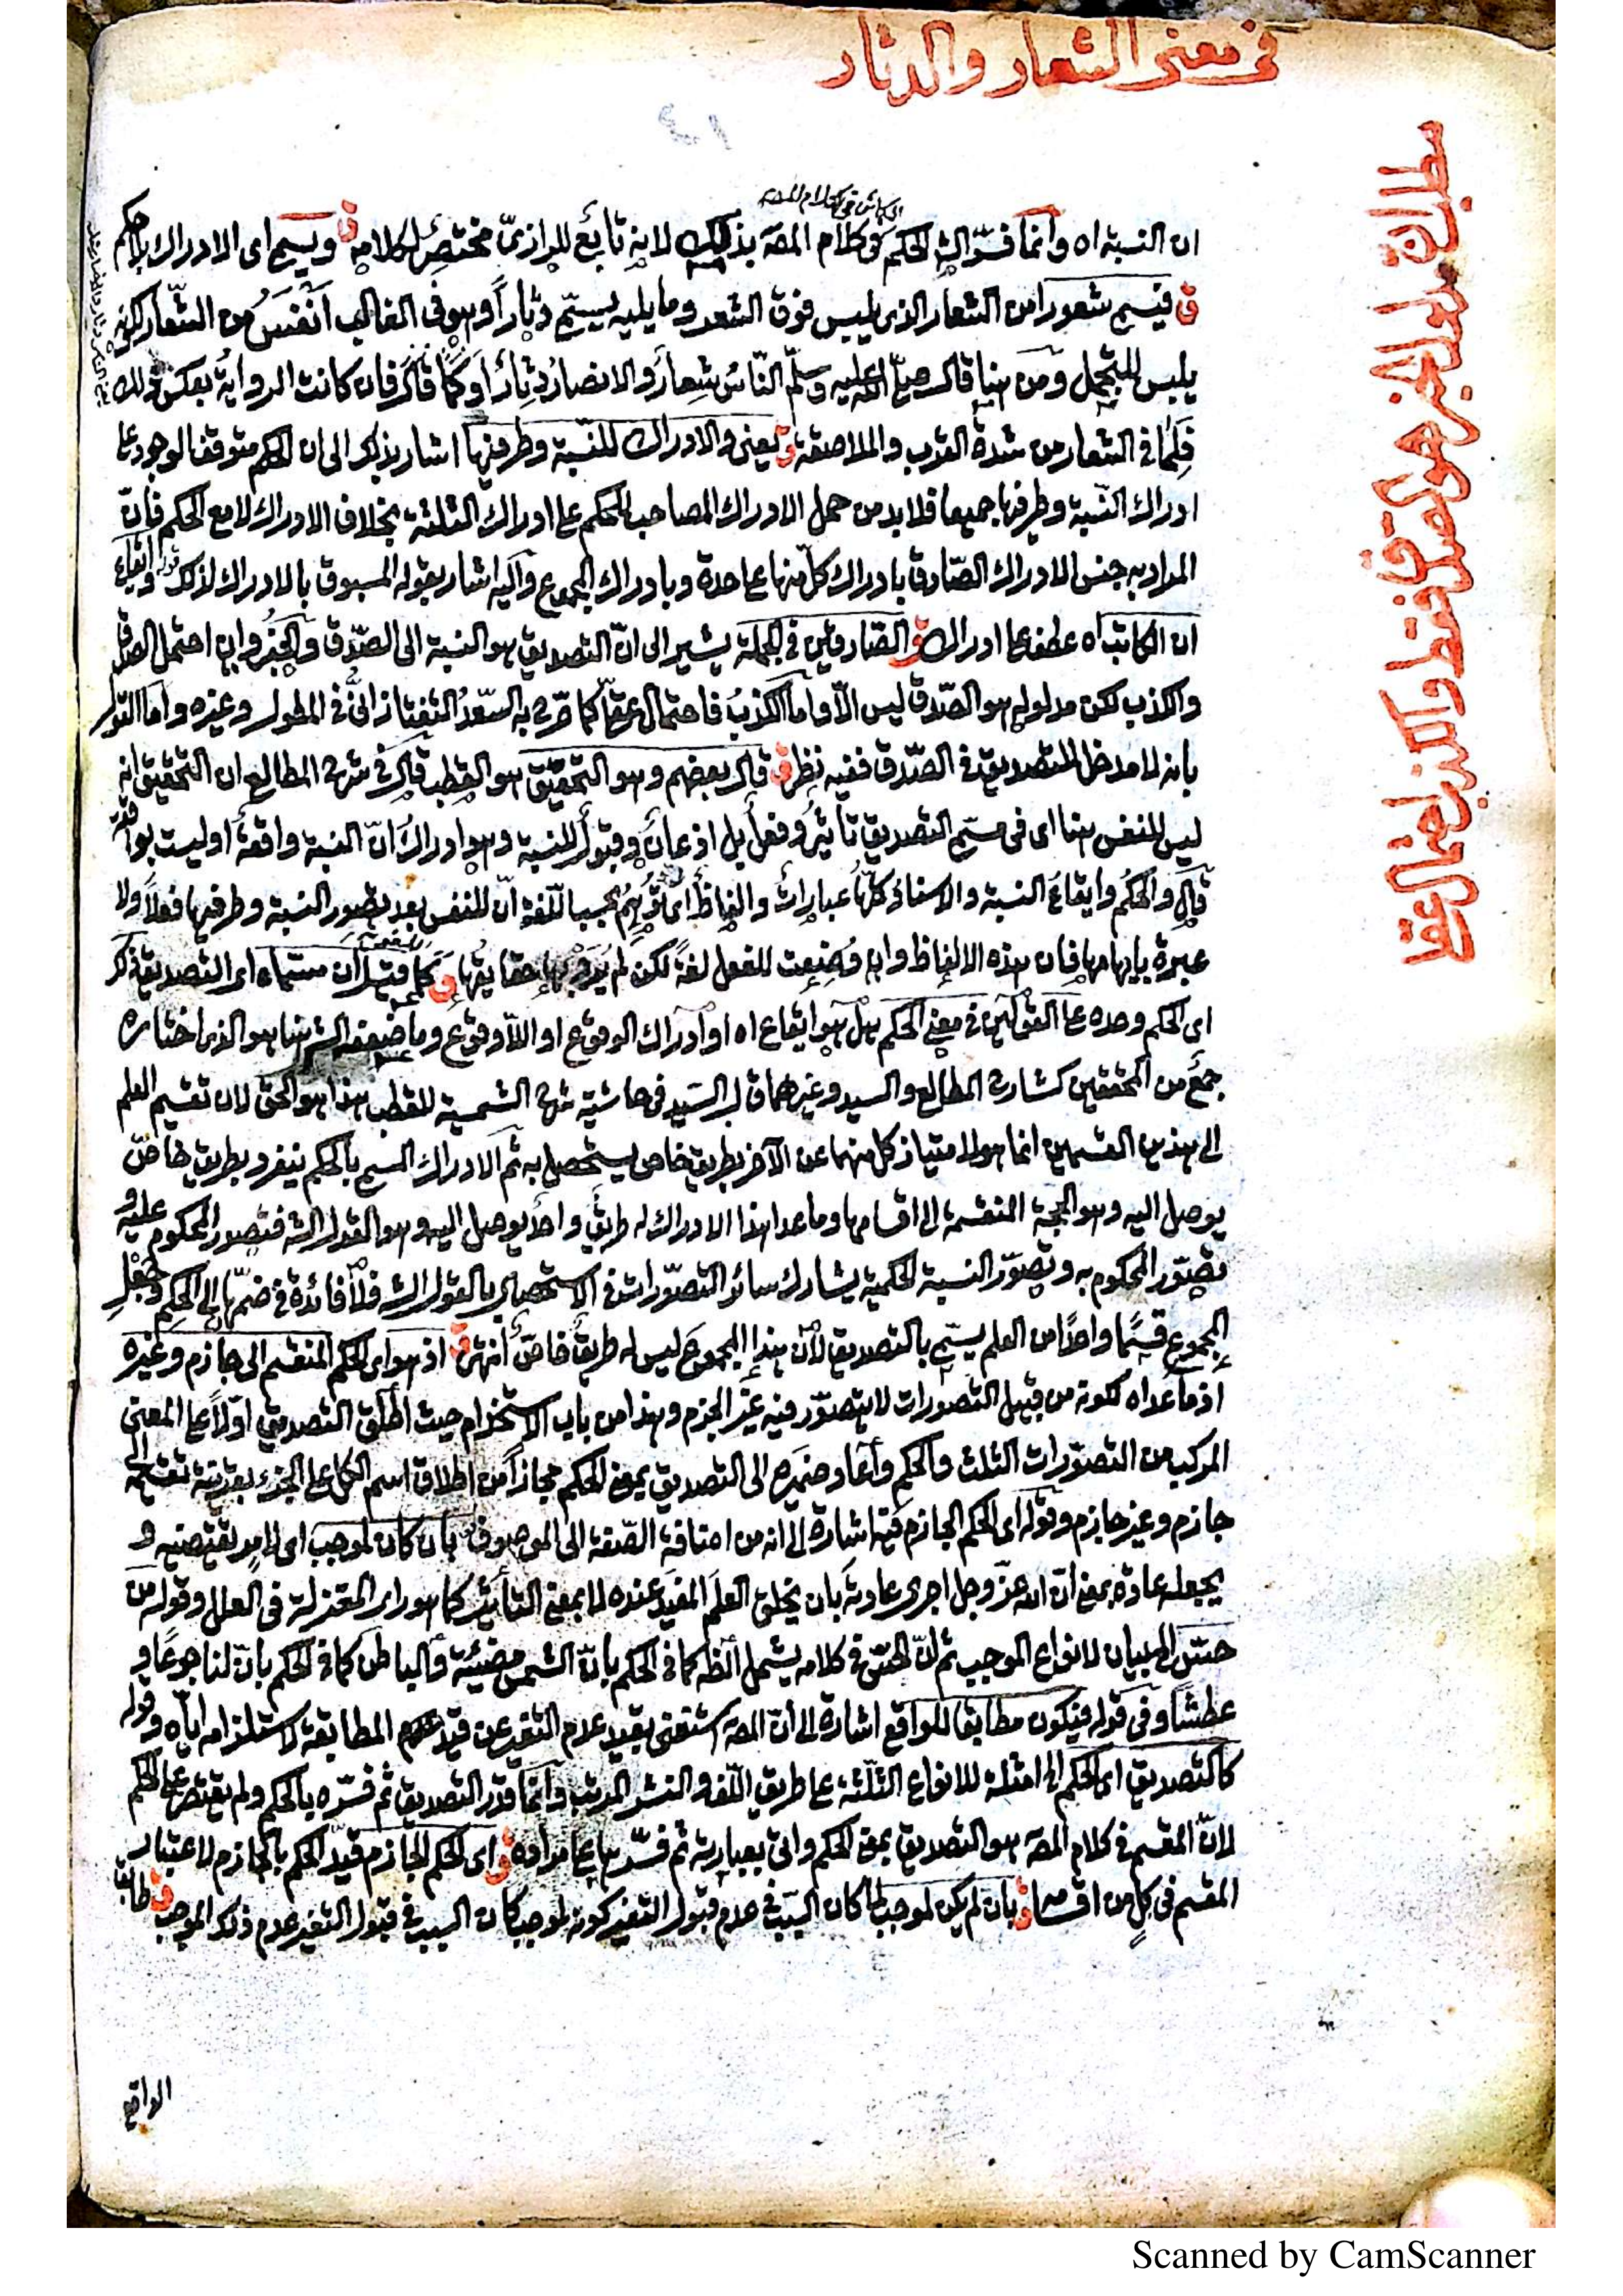 في معنى الشعار والدثار
مطلب ان مدلول الخبر هو الصدق فقط والكذب احتمال عقلي
ان النسبة اه وانما فسّر الش الحكم في كلام المصه بذلك لانه تابع للرازيّ مختصر لكلامه ق ويسمى اى الادراك بلا حكم
ق فيسمى شعورا من الشعار الذى يلبس فوق الشعر وما يليه يسمّى دثاراً وهو في الغالب انفسُ من الشّعار لكونه
يلبس للتجمل ومن هنا قال صلى الله عليه وسلّم النّاس شعار والانصار دثار او كما قال فان كانت الرواية بعكس ذلك
فلما في الشعار من شدة القرب والملاصقة ق يعنى والادراك للنسبة وطرفيها اشار بذلك الى ان الحكم متوقف الوجود على
ادراك النسبة وطرفيها جميعا فلا بد من حمل الادراك المصاحب للحكم على ادراك الثلثة بخلاف الادراك لا مع الحكم فانّ
المراد به جنس الادراك الصّادق بادراك كلّ منها على حدة وبادراك المجموع واليه اشار بقوله المسبوق بالادراك لذلك قوله وايقاع
ان الكاتب اه عطف على ادراك ق والصّادقين في الجملة يشير الى انّ التصديق هو النسبة الى الصّدق والخبر وان احتمل الصدق
والكذب لكن مدلوله هو الصّدق ليس الّا واما الكذب فاحتمال عقلّي كما صّرح به السّعدُ التفتازانىُّ في المطول وغيره واما القول
بانه لا مدخل للتصديق في الصّدق ففيه نظر ق قال بعضهم وهو التحقيق هو القطب قال في شرح المطالع ان التحقيق انه
ليس للنفس هنا اى في مسمى التصديق تأثير وفعل بل اذعان وقبول للنسبة وهو ادراك انّ النسبة واقعة او ليست بواقعة
قال والحكم وايقاع النسبة والاسناد كلّها عبارات والفاظ اى توهم بحسب اللّغة انّ للنفس بعد تصور النسبة وطرفيها فعلاً ولا
عبرة بايهامها فان هذه الالفاظ وان وُضِعت للفعل لغةً لكن لم يُرَد بها حقايقها ق كما قيل ان مسمّاه اى التصديق ذلك
اى الحكم وحده على القولين في معنى الحكم هل هو ايقاع اه او ادراك الوقوع او اللّاوقوع وما ضعفه الش هنا هو الذى اختاره
جمع من المحققين كشارح المطالع والسيد وغيرهما قال السّيد في حاشية شرح الشمسية للقطب هذا هو الحق لان تقسيم العلم
الى هذين القسمين انما هو لامتياز كل منهما عن الآخر بطريق خاص يستحصل به ثم الادراك المسمى بالحكم ينفرد بطريق خاصّ
يوصل اليه وهو الحجة المنقسمة الى اقسامها وما عدا هذا الادراك له طريق واحد يوصل اليه وهو القول الش فتصور المحكوم عليه و
تصوّر المحكوم به وتصوّر النسبة الحكمية يشارك سائر التصوّرات في الاستحصال بالقول الش فلا فائدة في ضمّها الى الحكم وجَعْلِ
المجموع قسمًا واحدًا من العلم يسمّى بالتصديق لانّ هذا المجموع ليس له طريق خاصّ انتهى ق اذ هو اى الحكم المنقسم الى جازم وغيره
اذ ما عداه لكونه من قبيل التصورات لا يتصوّر فيه غير الجزم وهذا من باب الاستخدام حيث اطلق التصديق اوّلاً على المعنى
المركب من التصوّرات الثلث والحكم واعاد ضميره الى التصديق بمعنى الحكم مجازاً من اطلاق اسم الكل على الجزء بقرينة تقسيمه الى
جازم وغير جازم وقوله اى الحكم الجازم فيه اشارة الى انه من اضافة الصّفة الى الموصوف بان كان لموجب اى لامر يقتضيه و
يجعله عادة بمعنى انّ الله عزّ وجل اجرى عادته بان يخلق العلم المفيد عنده لا بمعنى التأثير كما هو رأى المعتزلة في العلل وقوله من
حسّ الخ لبيان لانواع الموجب ثم انّ الحسّ في كلامه يشمل الظه كما في الحكم بانّ الشمس مضيئة والباطن كما في الحكم بانّ لنا جوعًا و
عطشًا وفي قوله فيكون مطابقا للواقع اشارة الى انّ المصه استغنى بقيد عدم التغير عن قيد المطابقة لاستلزامه ايّاه وقوله
كالتصديق اى الحكم الخ امثلة للانواع الثلثة على طريق اللّف والنشر المرتب وانما قدّر التصديق ثم فسّره بالحكم ولم يقتصر على الحكم
لانّ المقسم في كلام المصه هو التصديق بمعنى الحكم واتى بعبارته ثم فسّرها بما مراده ق اى الحكم الجازم قيّد الحكم بالجازم لاعتبار
المقسم في كل من اقسامه ق بان لم يكن لموجب لما كان السّبب في عدم قبول التغير كونه لموجب كان السبب في قبول التغير عدم ذلك الموجب ق طابق
الواقع
Scanned by CamScanner